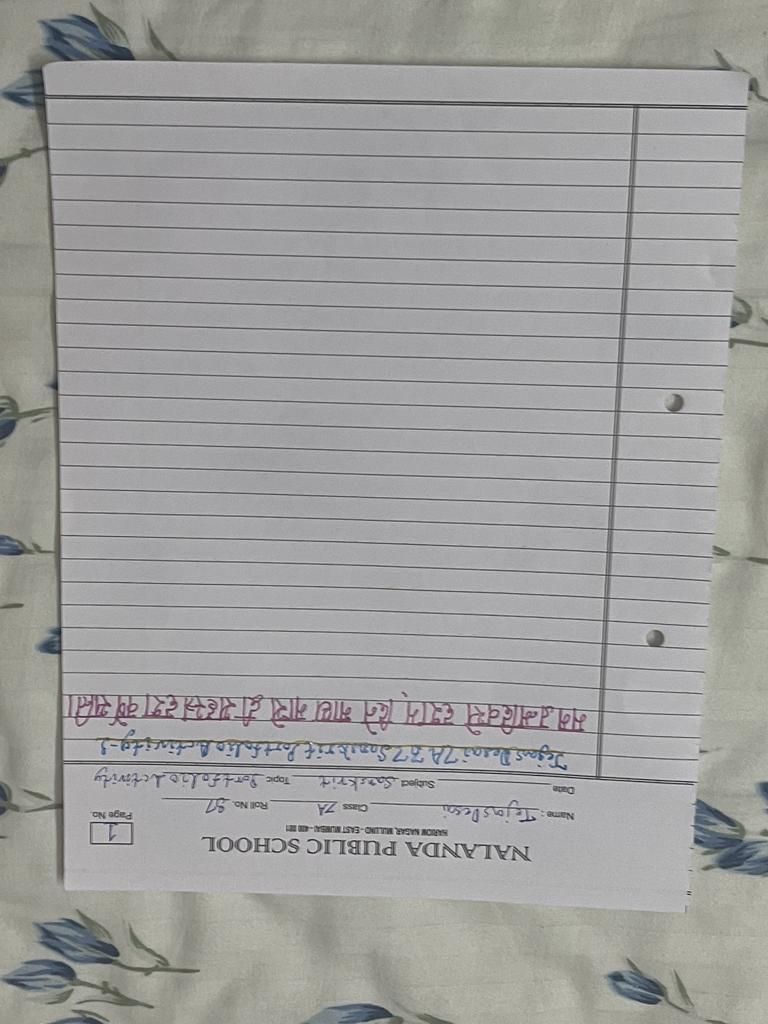 NALANDA PUBLIC SCHOOL
HARIOM NAGAR, MULUND - EAST MUMBAI - 400 081
1
Page No.
Name: Tejas Desai Class 7A Roll No. 37
Date Subject Sanskrit Topic Portfolio Activity
Tejas Desai 7A 37 Sanskrit Portfolio Activity-1
मम जन्मदिवसे दशम् दिने माघ मासे द्वी सहस्त्र दश वर्षे सन्ति।